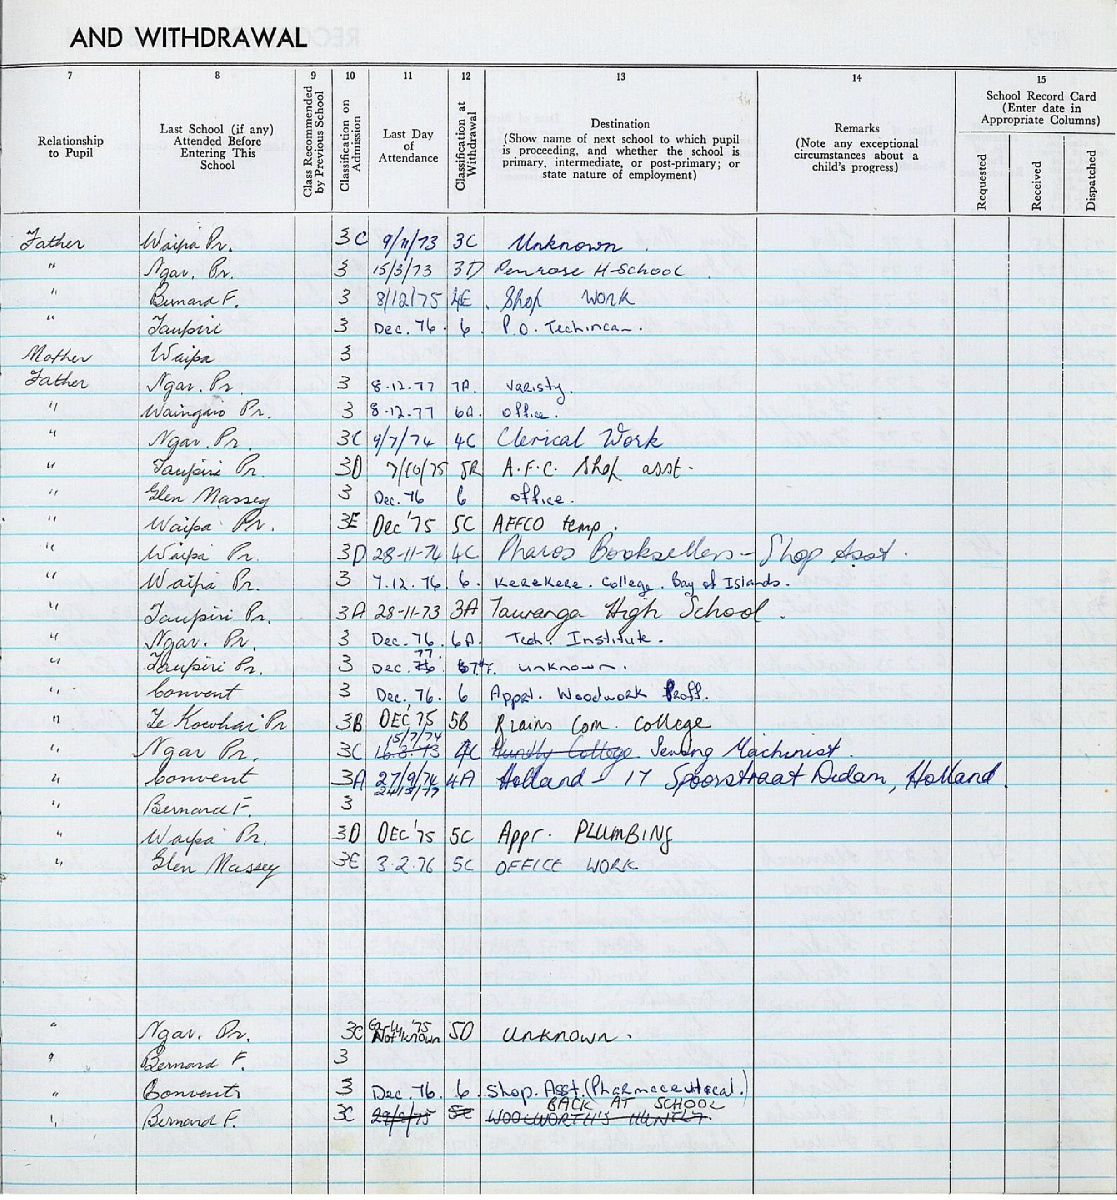 AND WITHDRAWAL
7 8 9 10 11 12 13 14 15
Relationship to Pupil
Last School (if any) Attended Before Entering This School
Class Recommended by Previous School
Classification on Admission
Last Day of Attendance
Classification at Withdrawal
Destination (Show name of next school to which pupil is proceeding, and whether the school is primary, intermediate, or post-primary; or state nature of employment)
Remarks (Note any exceptional circumstances about a child's progress)
School Record Card (Enter date in Appropriate Columns)
Requested Received Dispatched
Father Waipa Pr. 3C 9/11/73 3C Unknown.
" Ngar. Pr. 3 15/3/73 3D Penrose H-School
" Bernard F. 3 8/12/75 4E. Shop Work
" Taupiri 3 Dec. 76. 6. P.O. Techincan.
Mother Waipa 3
Father Ngar. Pr. 3 8-12-77 7A. Varisty.
" Waingaro Pr. 3 8-12-77 6A. office.
" Ngar. Pr. 3C 9/7/74 4C Clerical Work
" Taupiri Pr. 3D 7/10/75 5R A.F.C. Shop asst.
" Glen Massey 3 Dec. 76 6 office.
" Waipa Pr. 3E Dec '75 5C AFFCO temp.
" Waipa Pr. 3D 28-11-74 4C Pharos Booksellers - Shop Asst.
" Waipa Pr. 3 7.12.76 6. Kerekere. College. Bay of Islands.
" Taupiri Pr. 3A 28-11-73 3A Tauranga High School.
" Ngar. Pr. 3 Dec. 76 6A. Tech. Institute.
" Taupiri Pr. 3 Dec. 77 unknown.
" Convent 3 Dec. 76. 6 Appt. Woodwork Proff.
" Te Kowhai Pr 3B DEC '75 5B Rlains Com. College
" Ngar Pr. 3C 15/7/74 4C Huntly College Sewing Machinist.
" Convent 3A 27/9/74 4A Holland - 17 Spoorstraat Didam, Holland.
" Bernard F. 3
" Waipa Pr. 3D DEC '75 5C Appr. PLUMBING
" Glen Massey 3E 3.2.76 5C OFFICE WORK
" Ngar. Pr. 3C Early '75 Not known 5D Unknown.
" Bernard F. 3
" Convent 3 Dec. 76. 6. Shop. Asst. (Pharmaceutical.)
" Bernard F. 3C BACK AT SCHOOL
WOOLWORTH'S HUNTLY.